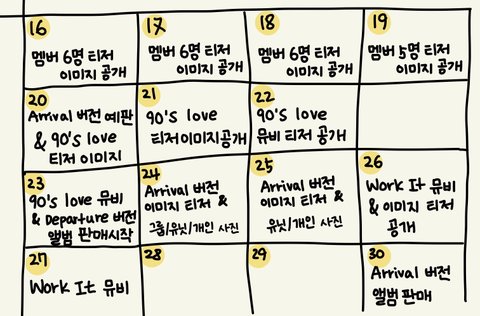 16
멤버 6명 티저
이미지 공개
17
멤버 6명 티저
이미지 공개
18
멤버 6명 티저
이미지 공개
19
멤버 5명 티저
이미지 공개
20
Arrival 버전 예판
& 90's love
티저 이미지
21
90's love
티저이미지공개
22
90's love
뮤비 티저 공개
23
90's love 뮤비
& Departure 버전
앨범 판매시작
24
Arrival 버전
이미지 티저 &
그룹/유닛/개인 사진
25
Arrival 버전
이미지 티저 &
유닛/개인 사진
26
Work It 뮤비
& 이미지 티저
공개
27
Work It 뮤비
28
29
30
Arrival 버전
앨범 판매